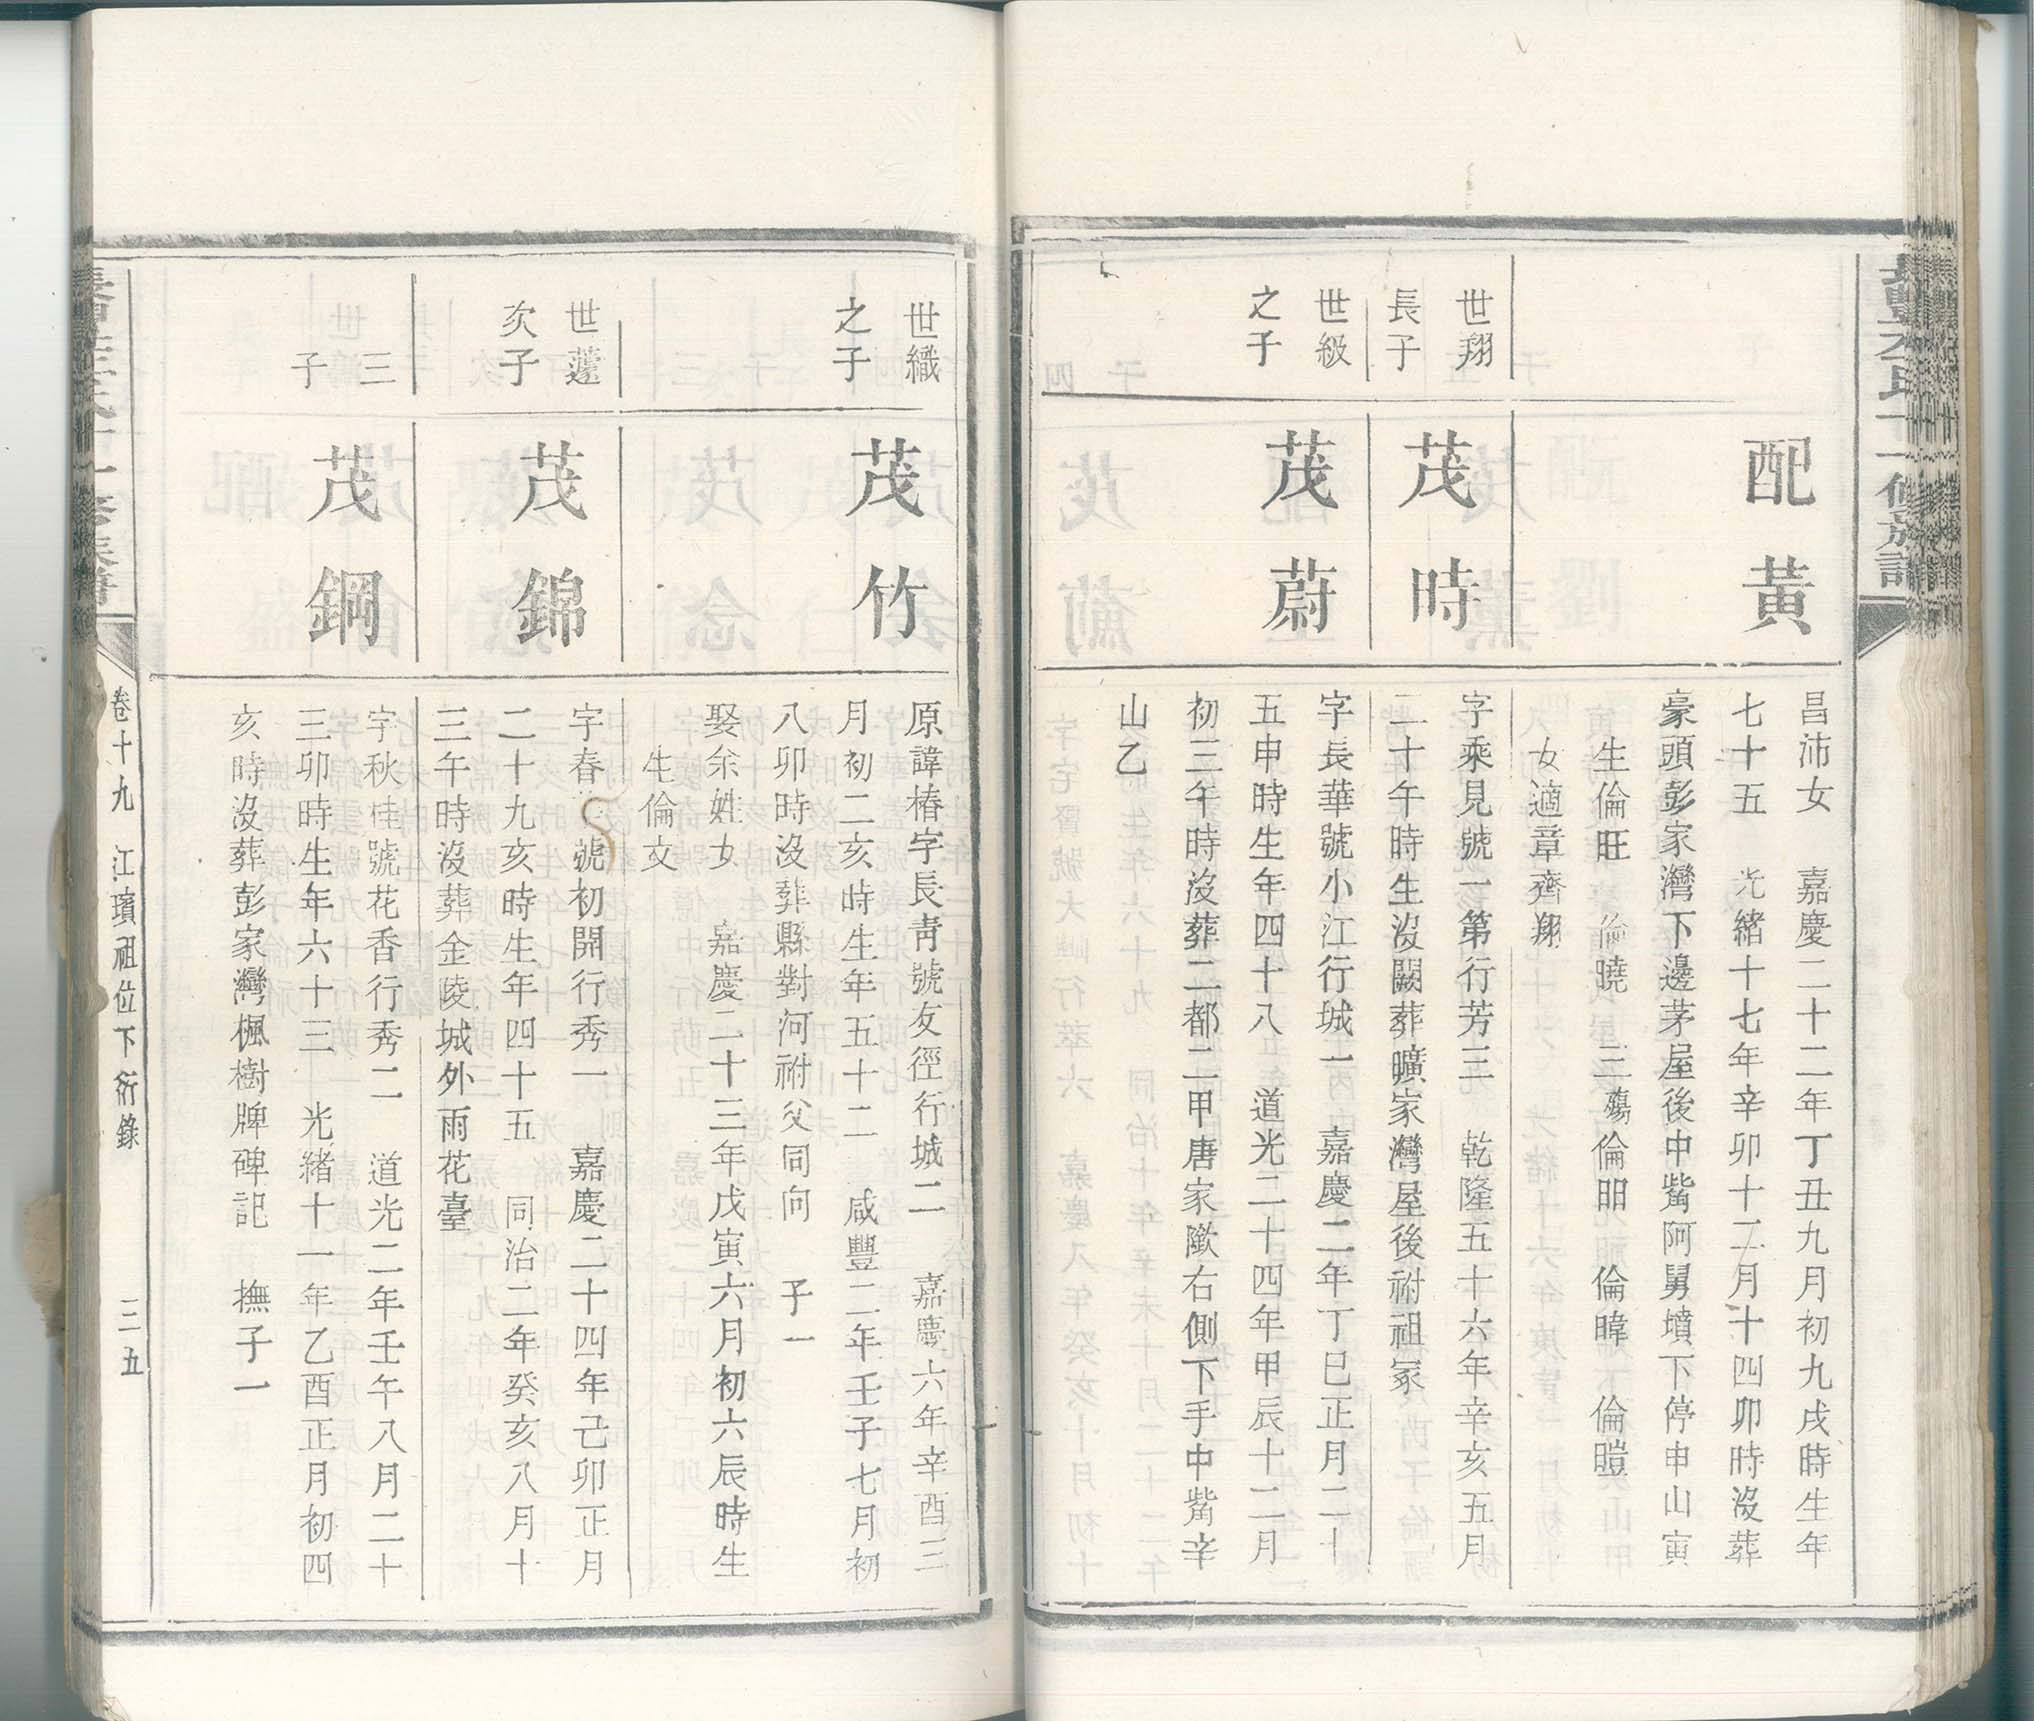 配黃
昌沛女　嘉慶二十二年丁丑九月初九戌時生年
七十五　光緒十七年辛卯十二月十四卯時沒葬
豪頭彭家灣下邊茅屋後中嘴阿舅墳下停申山寅
生倫旺　倫曉　三殤倫明　倫暐　倫暟
女適章齊翔
世翔
長子
茂時
字乘見號一第行芳三　乾隆五十六年辛亥五月
二十午時生沒闕葬曠家灣屋後祔祖冢
世級
之子
茂蔚
字長華號小江行城一　嘉慶二年丁巳正月二十
五申時生年四十八　道光二十四年甲辰十二月
初三午時沒葬二都二甲唐家歘右側下手中嘴辛
山乙
世織
之子
茂竹
原諱椿字長青號友徑行城二　嘉慶六年辛酉三
月初二亥時生年五十二　咸豐二年壬子七月初
八卯時沒葬縣對河祔父同向　子一
娶余姓女　嘉慶二十三年戊寅六月初六辰時生
生倫文
世薳
次子
茂錦
字春　號初開行秀一　嘉慶二十四年己卯正月
二十九亥時生年四十五　同治二年癸亥八月十
三午時沒葬金陵城外雨花臺
三
子
茂鋼
字秋桂號花香行秀二　道光二年壬午八月二十
三卯時生年六十三　光緒十一年乙酉正月初四
亥時沒葬彭家灣楓樹牌碑記　撫子一
卷十九　江璸祖位下衍錄　三五